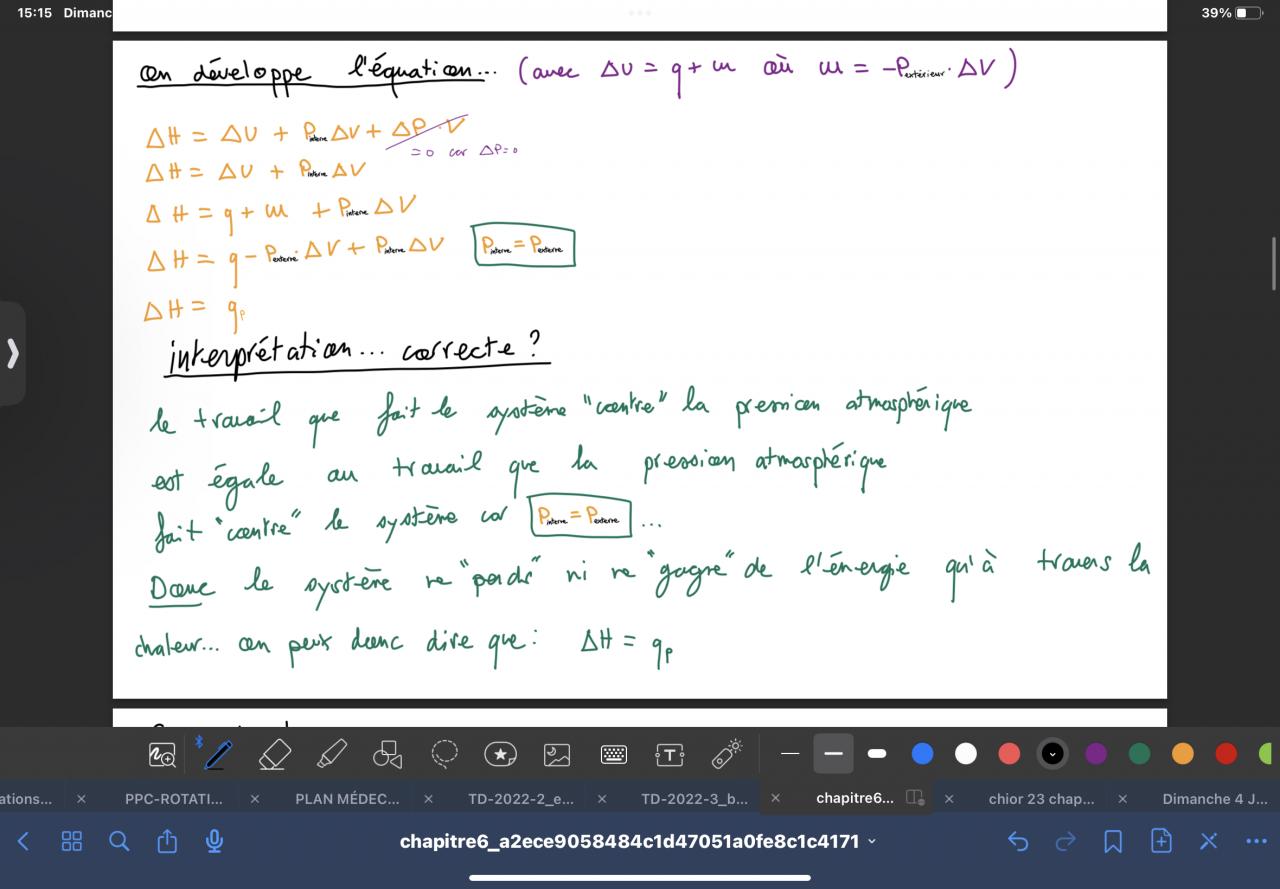 15:15 Dimanc
39%
on développe l'équation... (avec ΔU = q + w où w = -Pextérieur · ΔV)
ΔH = ΔU + Pinterne ΔV + ΔP · V
= 0 car ΔP=0
ΔH = ΔU + Pinterne ΔV
ΔH = q + w + Pinterne ΔV
ΔH = q - Pexterne · ΔV + Pinterne ΔV Pinterne = Pexterne
ΔH = qp
interprétation... correcte ?
le travail que fait le système "contre" la pression atmosphérique
est égale au travail que la pression atmosphérique
fait "contre" le système car Pinterne = Pexterne ...
Donc le système ne "perds" ni ne "gagne" de l'énergie qu'à travers la
chaleur... on peux donc dire que : ΔH = qp
ations... × PPC-ROTATI... × PLAN MÉDEC... × TD-2022-2_e... × TD-2022-3_b... × chapitre6... × chior 23 chap... × Dimanche 4 J...
chapitre6_a2ece9058484c1d47051a0fe8c1c4171